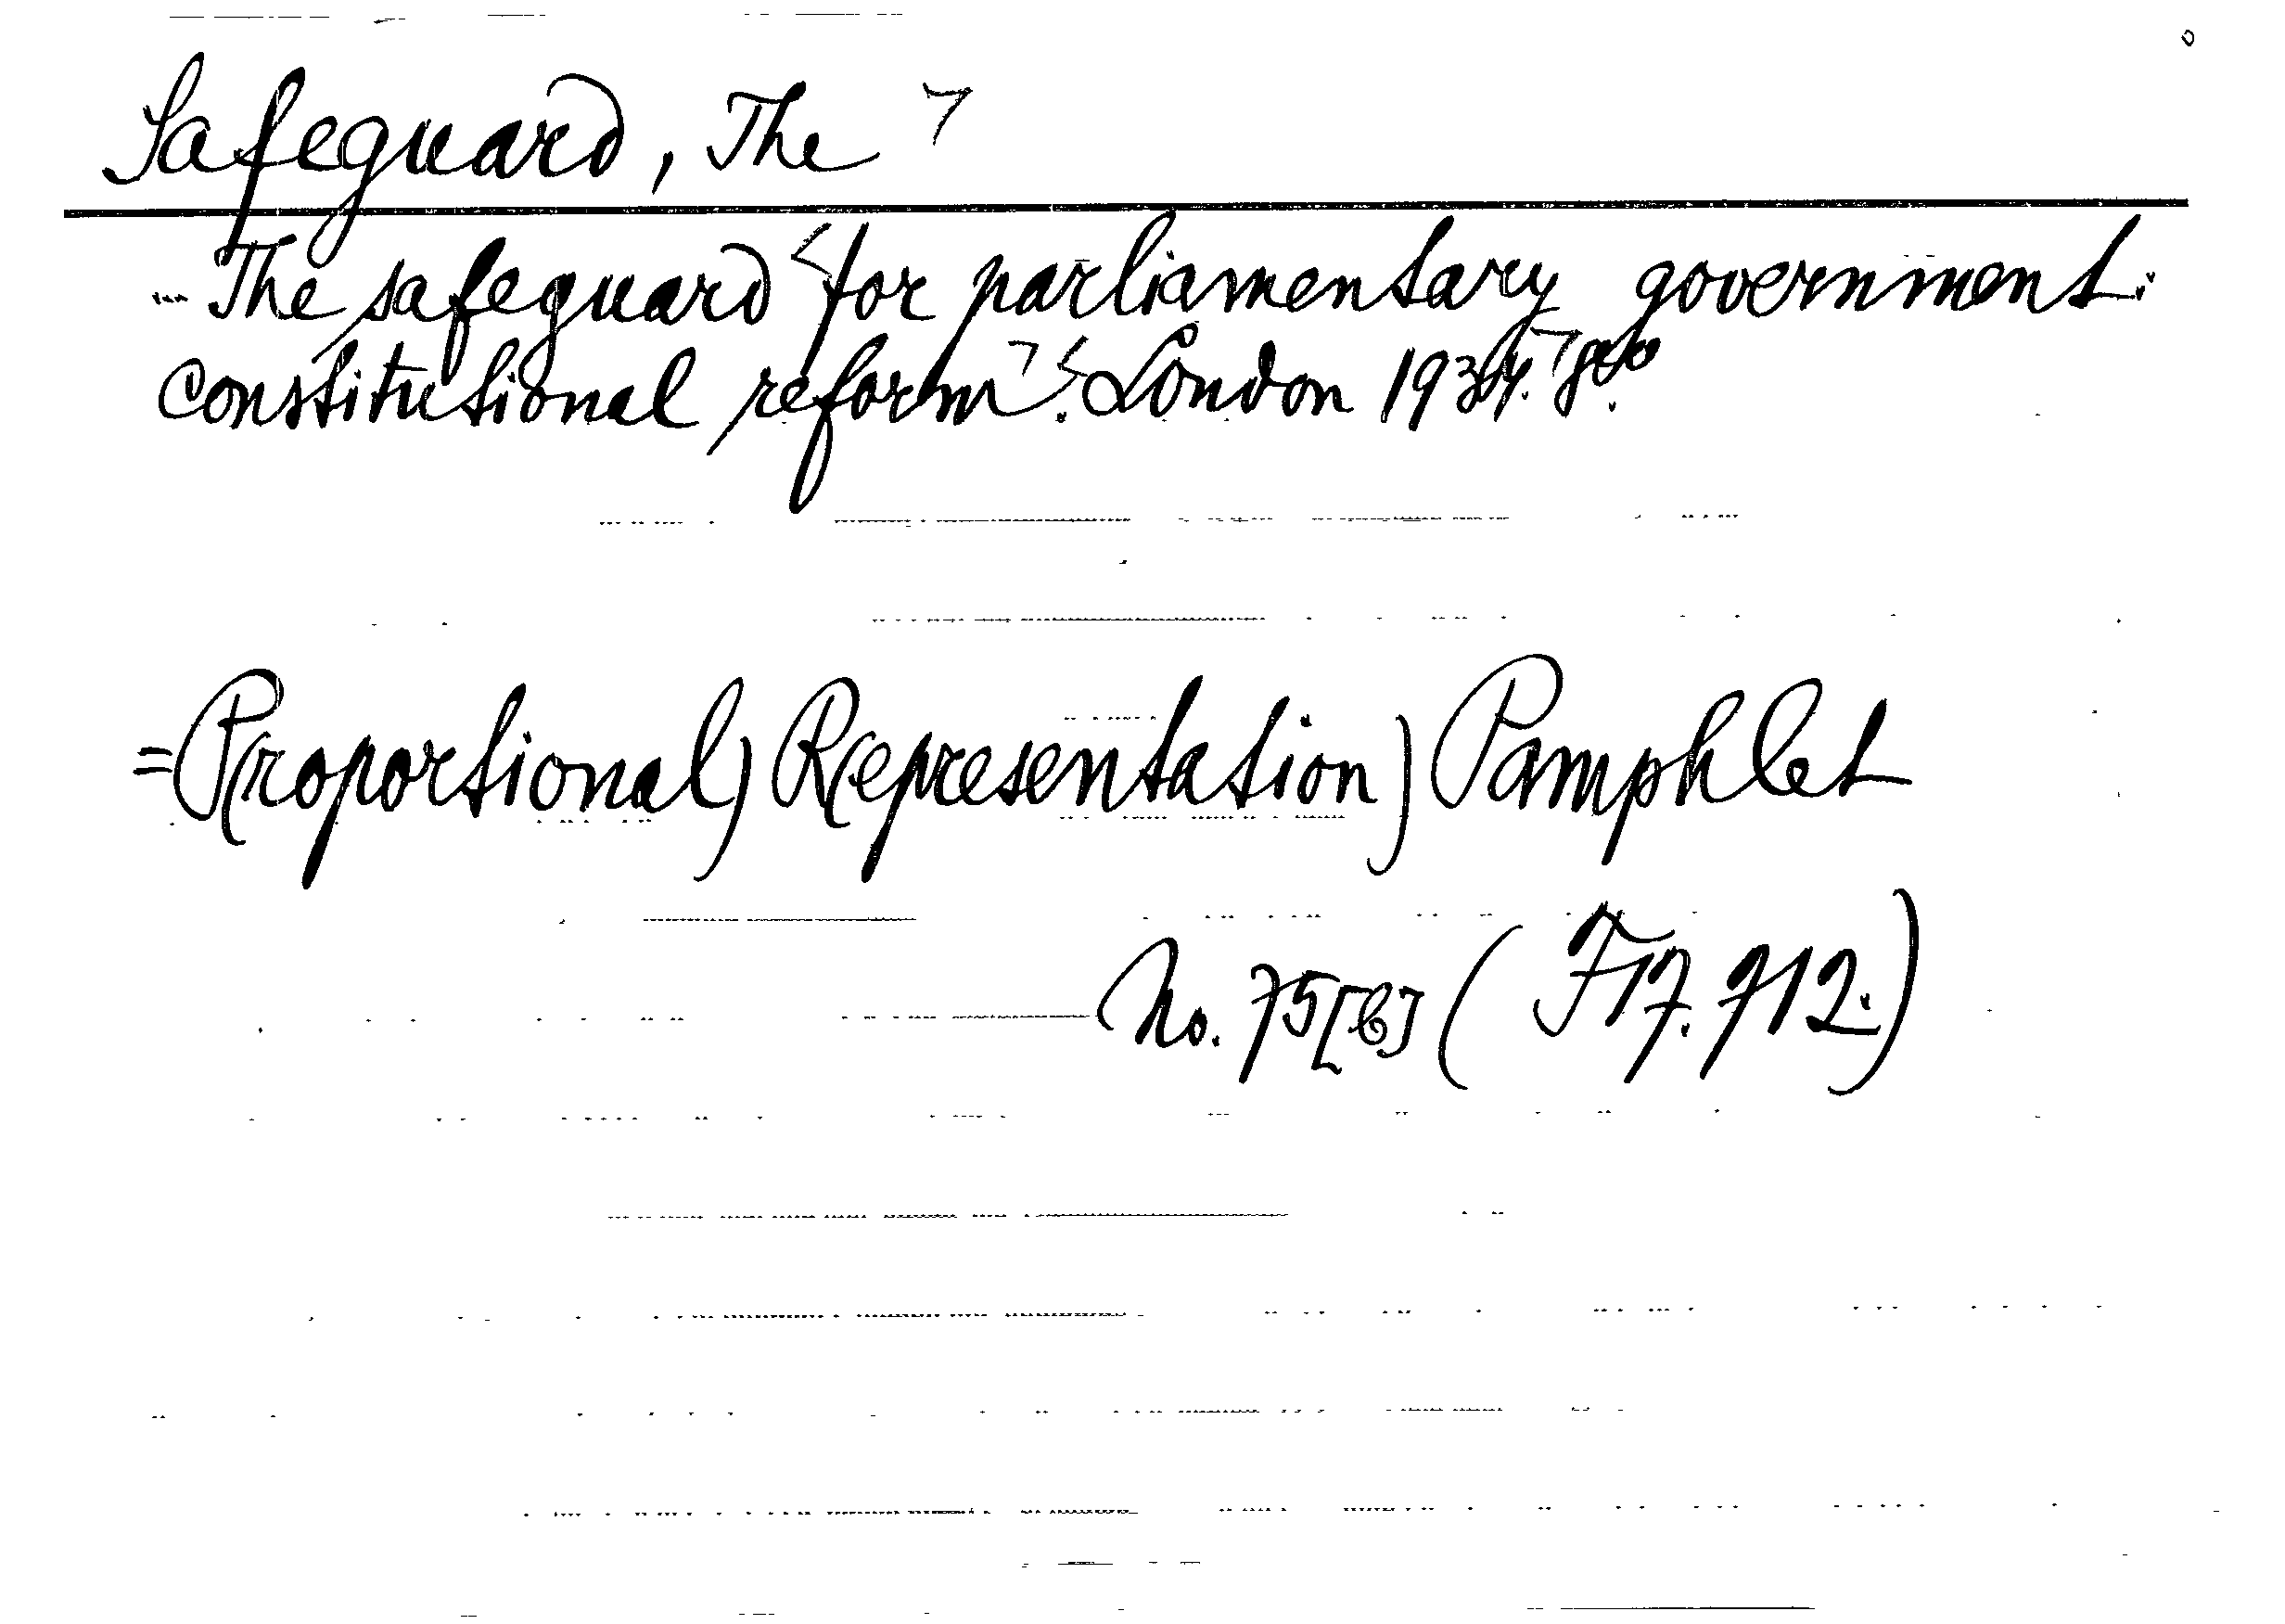 Safeguard, The
... The safeguard for parliamentary government:
Constitutional reform. London 1934. 8vo.
=P(roportional) R(epresentation) Pamphlet
No. 75[b] (F17.712.)